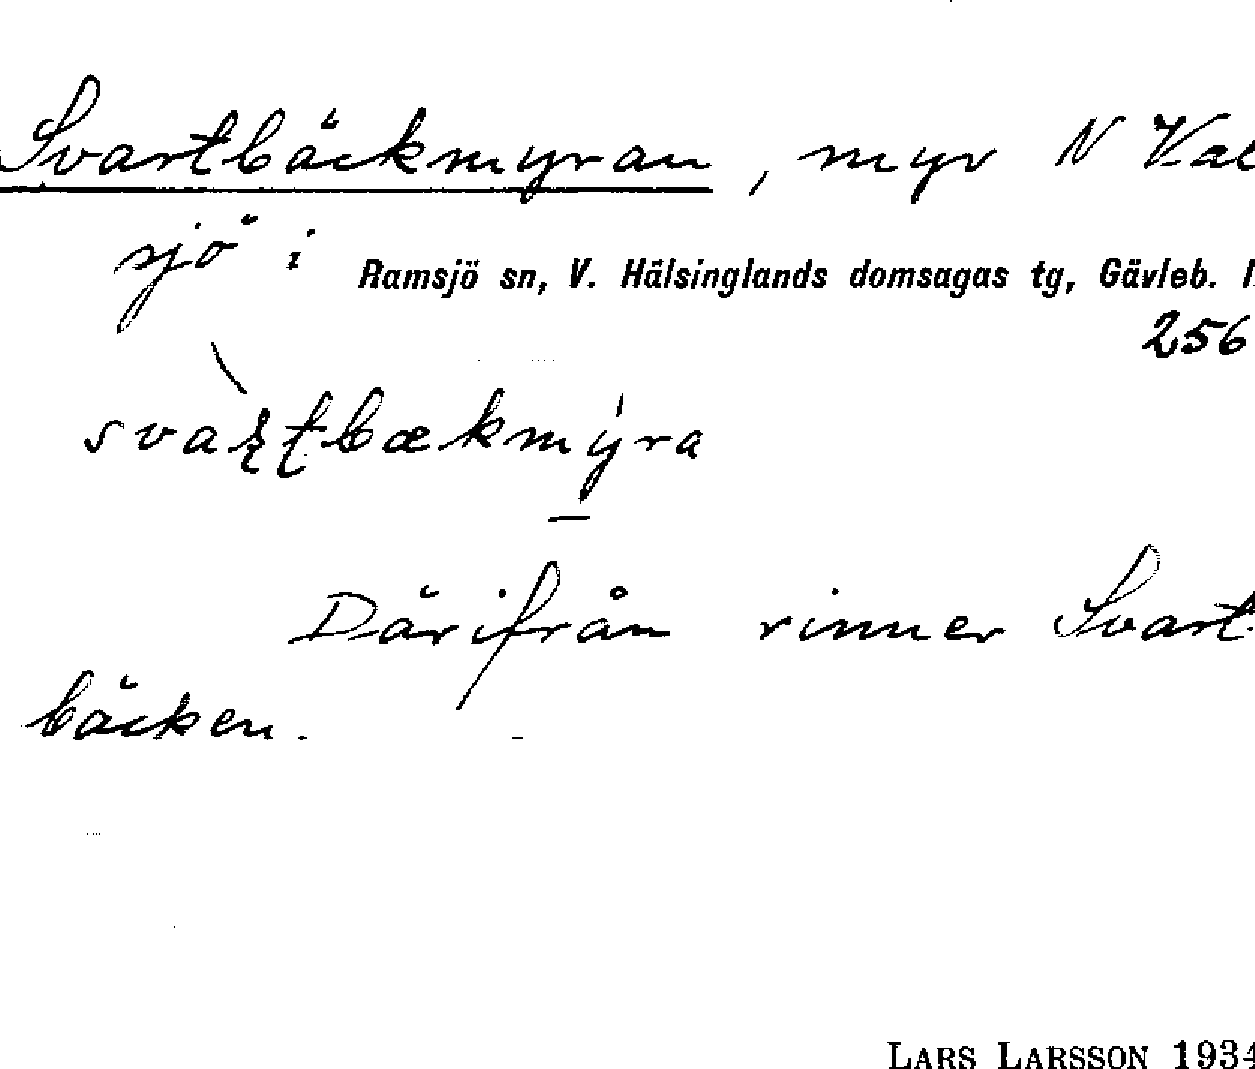 Svartbäckmyran, myr N Val
sjö i Ramsjö sn, V. Hälsinglands domsagas tg, Gävleb. l
256
Därifrån rinner Svart-
bäcken.
LARS LARSSON 1934